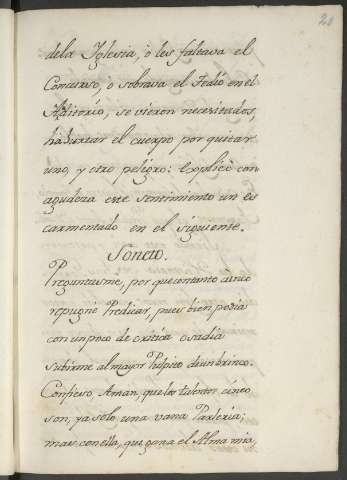 20
dela Iglesia, ò les faltava el
Concurso, ò sobrava el Tedio en el
Aditorio, se vieron necesitados,
há hurtar el cuerpo por quitar
uno, y otro peligro: Explicò con
agudeza este sentimiento un es
carmentado en el siguiente.
Soneto.
Preguntasme, por que contanto
repugnè Predicar, pues bien podia
con un poco de critica osadia
subirme al mayor Pulpito de un brinco.
Confieso, Aman, que los talentos cinco
son, ya solo, una vana Parleria;
mas con ella, que gana el Alma mia,